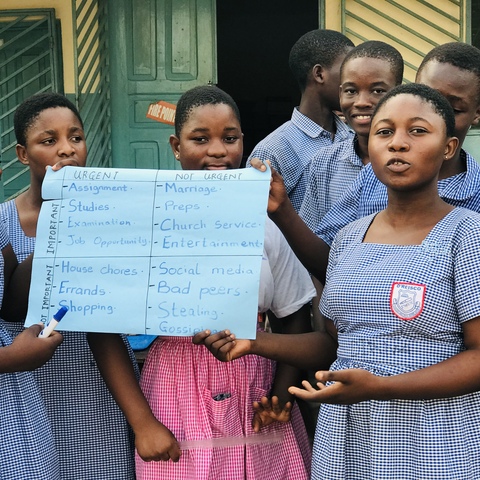 FIRE POINT
URGENT NOT URGENT
IMPORTANT
- Assignment. - Marriage.
- Studies. - Preps.
- Examination - Church service.
- Job Opportunity. - Entertainment.
NOT IMPORTANT
- House chores. - Social media
- Errands - Bad peers.
- Shopping. - Stealing.
- Gossiping